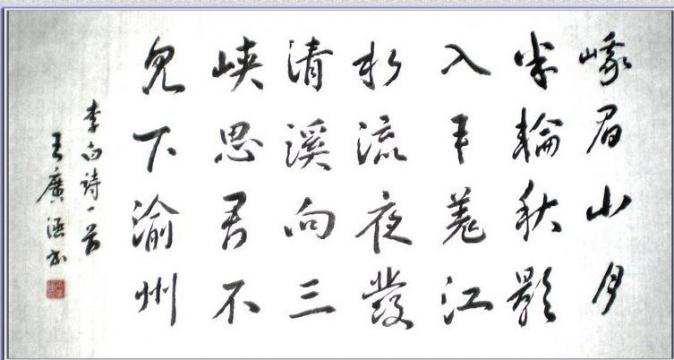 峨眉山月
半輪秋影
入平羌江
水流夜發
清溪向三
峡思君不
見下渝州
李白詩一首
王廣书